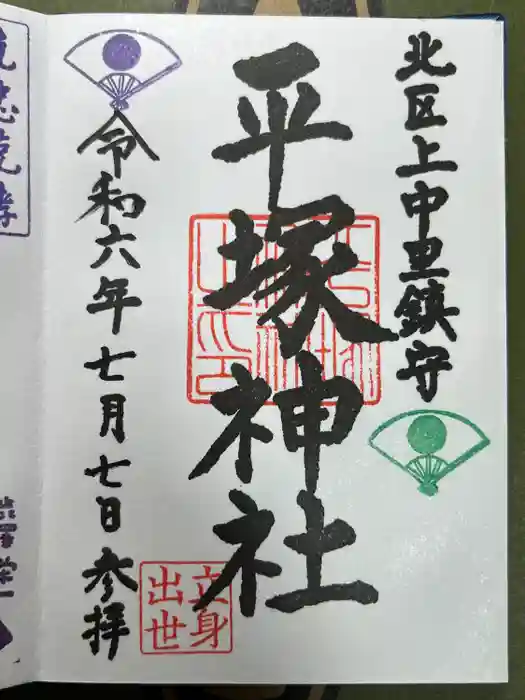 北区上中里鎮守
平塚神社
立身
出世
令和六年七月七日参拝